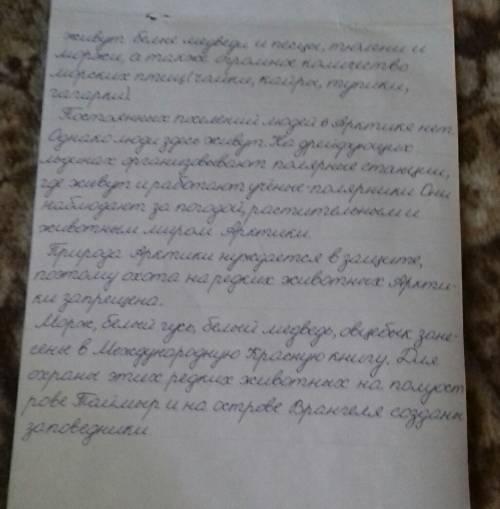 живут белые медведи и песцы, тюлени и
моржи, а также огромное количество
морских птиц (чайки, кайры, тупики,
гагарки).
Постоянных поселений людей в Арктике нет.
Однако люди здесь живут. На дрейфующих
льдинах организовывают полярные станции,
где живут и работают учёные полярники. Они
наблюдают за погодой, растительным и
животным миром Арктики.
Природа Арктики нуждается в защите,
поэтому охота на редких животных Аркти-
ки запрещена.
Морж, белый гусь, белый медведь, овцебык зане-
сены в Международную Красную книгу. Для
охраны этих редких животных на полуост
рове Таймыр и на острове Врангеля созданы
заповедники